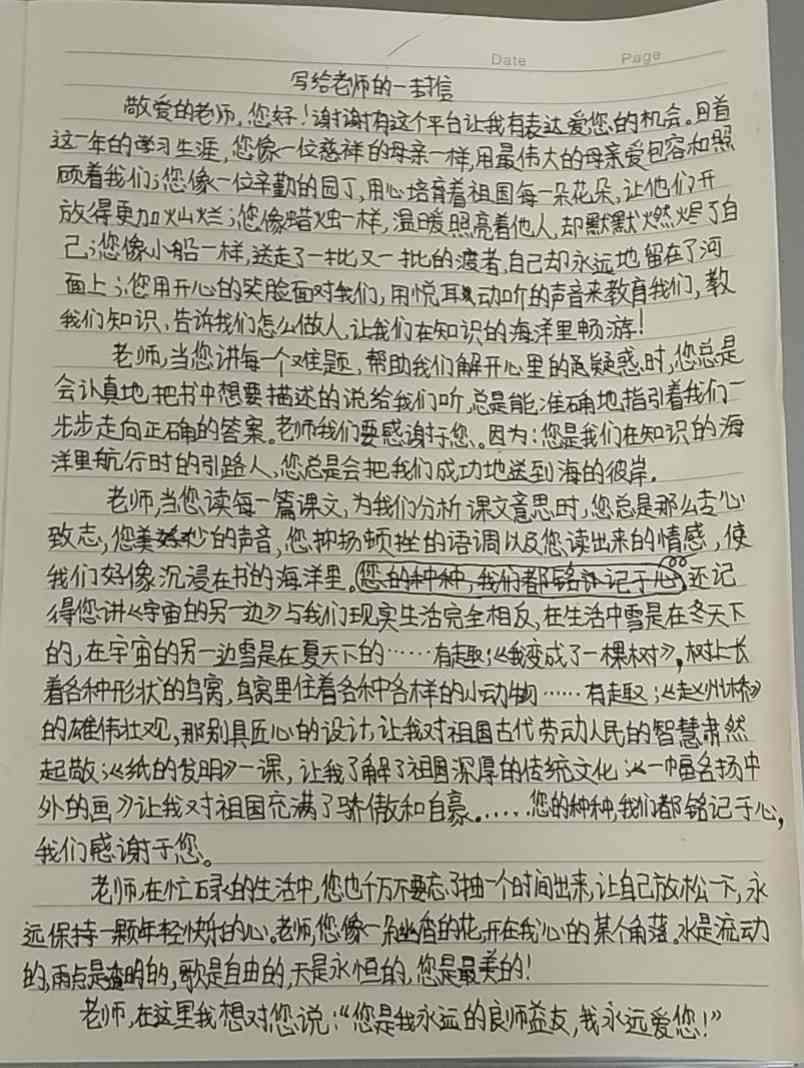 Date Page
写给老师的一封信
敬爱的老师,您好!谢谢有这个平台让我有表达爱您的机会。回首
这一年的学习生涯,您像一位慈祥的母亲一样,用最伟大的母亲爱包容和照
顾着我们;您像一位辛勤的园丁,用心培育着祖国每一朵花朵,让他们开
放得更加灿烂;您像蜡烛一样,温暖照亮着他人,却默默燃烬了自
己;您像小船一样,送走了一批又一批的渡者,自己却永远地留在了河
面上;您用开心的笑脸面对我们,用悦耳动听的声音来教育我们,教
我们知识、告诉我们怎么做人,让我们在知识的海洋里畅游!
老师,当您讲每一个难题,帮助我们解开心里的疑惑时,您总是
会认真地把书中想要描述的说给我们听,总是能准确地指引着我们一
步步走向正确的答案。老师我们要感谢于您、。因为:您是我们在知识的海
洋里航行时的引路人,您总是会把我们成功地送到海的彼岸.
老师,当您读每一篇课文,为我们分析课文意思时,您总是那么专心
致志,您美妙的声音,您抑扬顿挫的语调以及您读出来的情感,使
我们好像沉浸在书的海洋里。您的种种,我们都铭记于心 还记
得您讲《宇宙的另一边》与我们现实生活完全相反,在生活中雪是在冬天下
的,在宇宙的另一边雪是在夏天下的……有趣;《我变成了一棵树》,树上长
着各种形状的鸟窝,鸟窝里住着各种各样的小动物……有趣;《赵州桥》
的雄伟壮观,那别具匠心的设计,让我对祖国古代劳动人民的智慧肃然
起敬;《纸的发明》一课,让我了解了祖国深厚的传统文化;《一幅名扬中
外的画》让我对祖国充满了骄傲和自豪。……您的种种,我们都铭记于心,
我们感谢于您。
老师,在忙碌的生活中,您也千万不要忘了抽一个时间出来,让自己放松一下,永
远保持一颗年轻快乐的心。老师,您像一朵幽香的花,开在我心的某个角落。水是流动
的,雨点是透明的,歌是自由的,天是永恒的,您是最美的!
老师,在这里我想对您说:“您是我永远的良师益友,我永远爱您!”